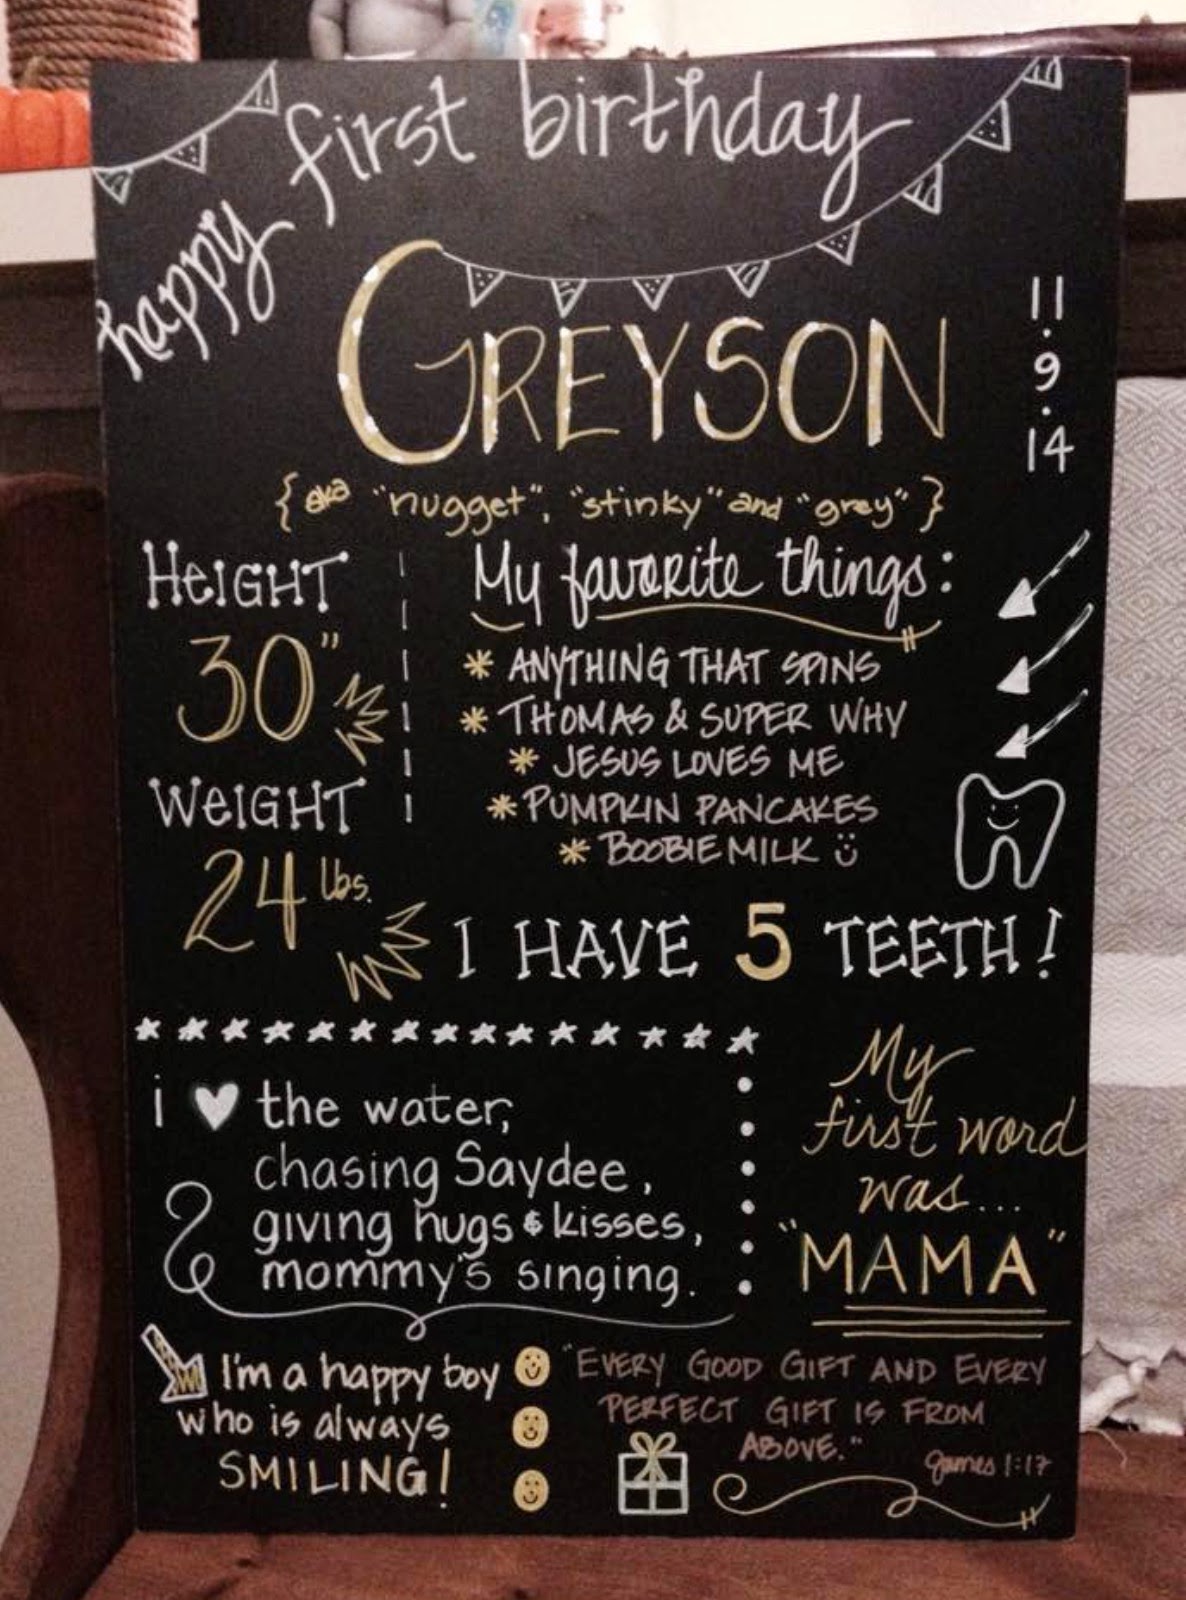 happy first birthday
GREYSON
11
.
9
.
14
{aka "nugget", "stinky" and "grey"}
HeIGHT
30"
WeIGHT
24 lbs.
My favorite things:
* ANYTHING THAT SPINS
* THOMAS & SUPER WHY
* JESUS LOVES ME
* PUMPKIN PANCAKES
* BOOBIE MILK
I HAVE 5 TEETH!
i ♥ the water,
chasing Saydee,
giving hugs & kisses,
mommy's singing.
My
first word
was...
"MAMA"
I'm a happy boy
who is always
SMILING!
"EVERY GOOD GIFT AND EVERY
PERFECT GIFT IS FROM
ABOVE."
James 1:17